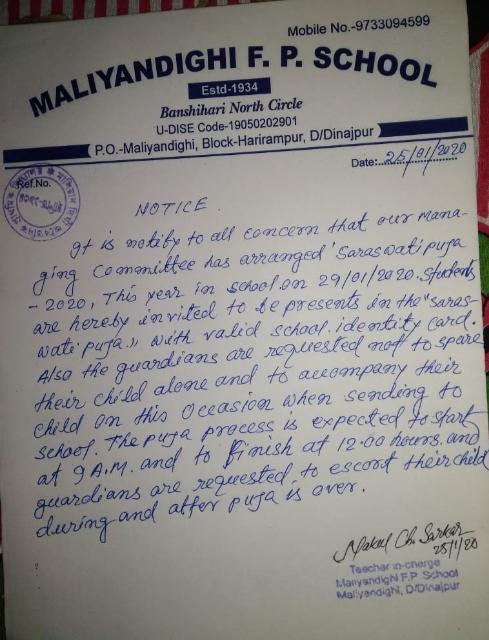 Mobile No.-9733094599
MALIYANDIGHI F. P. SCHOOL
Estd-1934
Banshihari North Circle
U-DISE Code-19050202901
P.O.-Maliyandighi, Block-Harirampur, D/Dinajpur
Date:..25/01/2020
Ref.No.
NOTICE
It is notify to all concern that our mana-
ging Committee has arranged 'Saraswati puja
- 2020, This year in school on 29/01/2020. Students
are hereby invited to be presents in the "saras-
wati puja." with valid school identity card.
Also the guardians are requested not to spare
their child alone and to accompany their
child on this occasion when sending to
school. The puja process is expected to start
at 9 A.M. and to finish at 12.00 hours. and
guardians are requested to escort their child
during and after puja is over.
Ch. Sarkar
25/1/20
Teacher in-charge
Maliyandighi F.P. School
Maliyandighi, D/Dinajpur